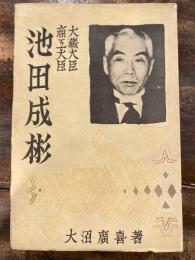 大蔵大臣
商工大臣
池田成彬
大沼廣喜著